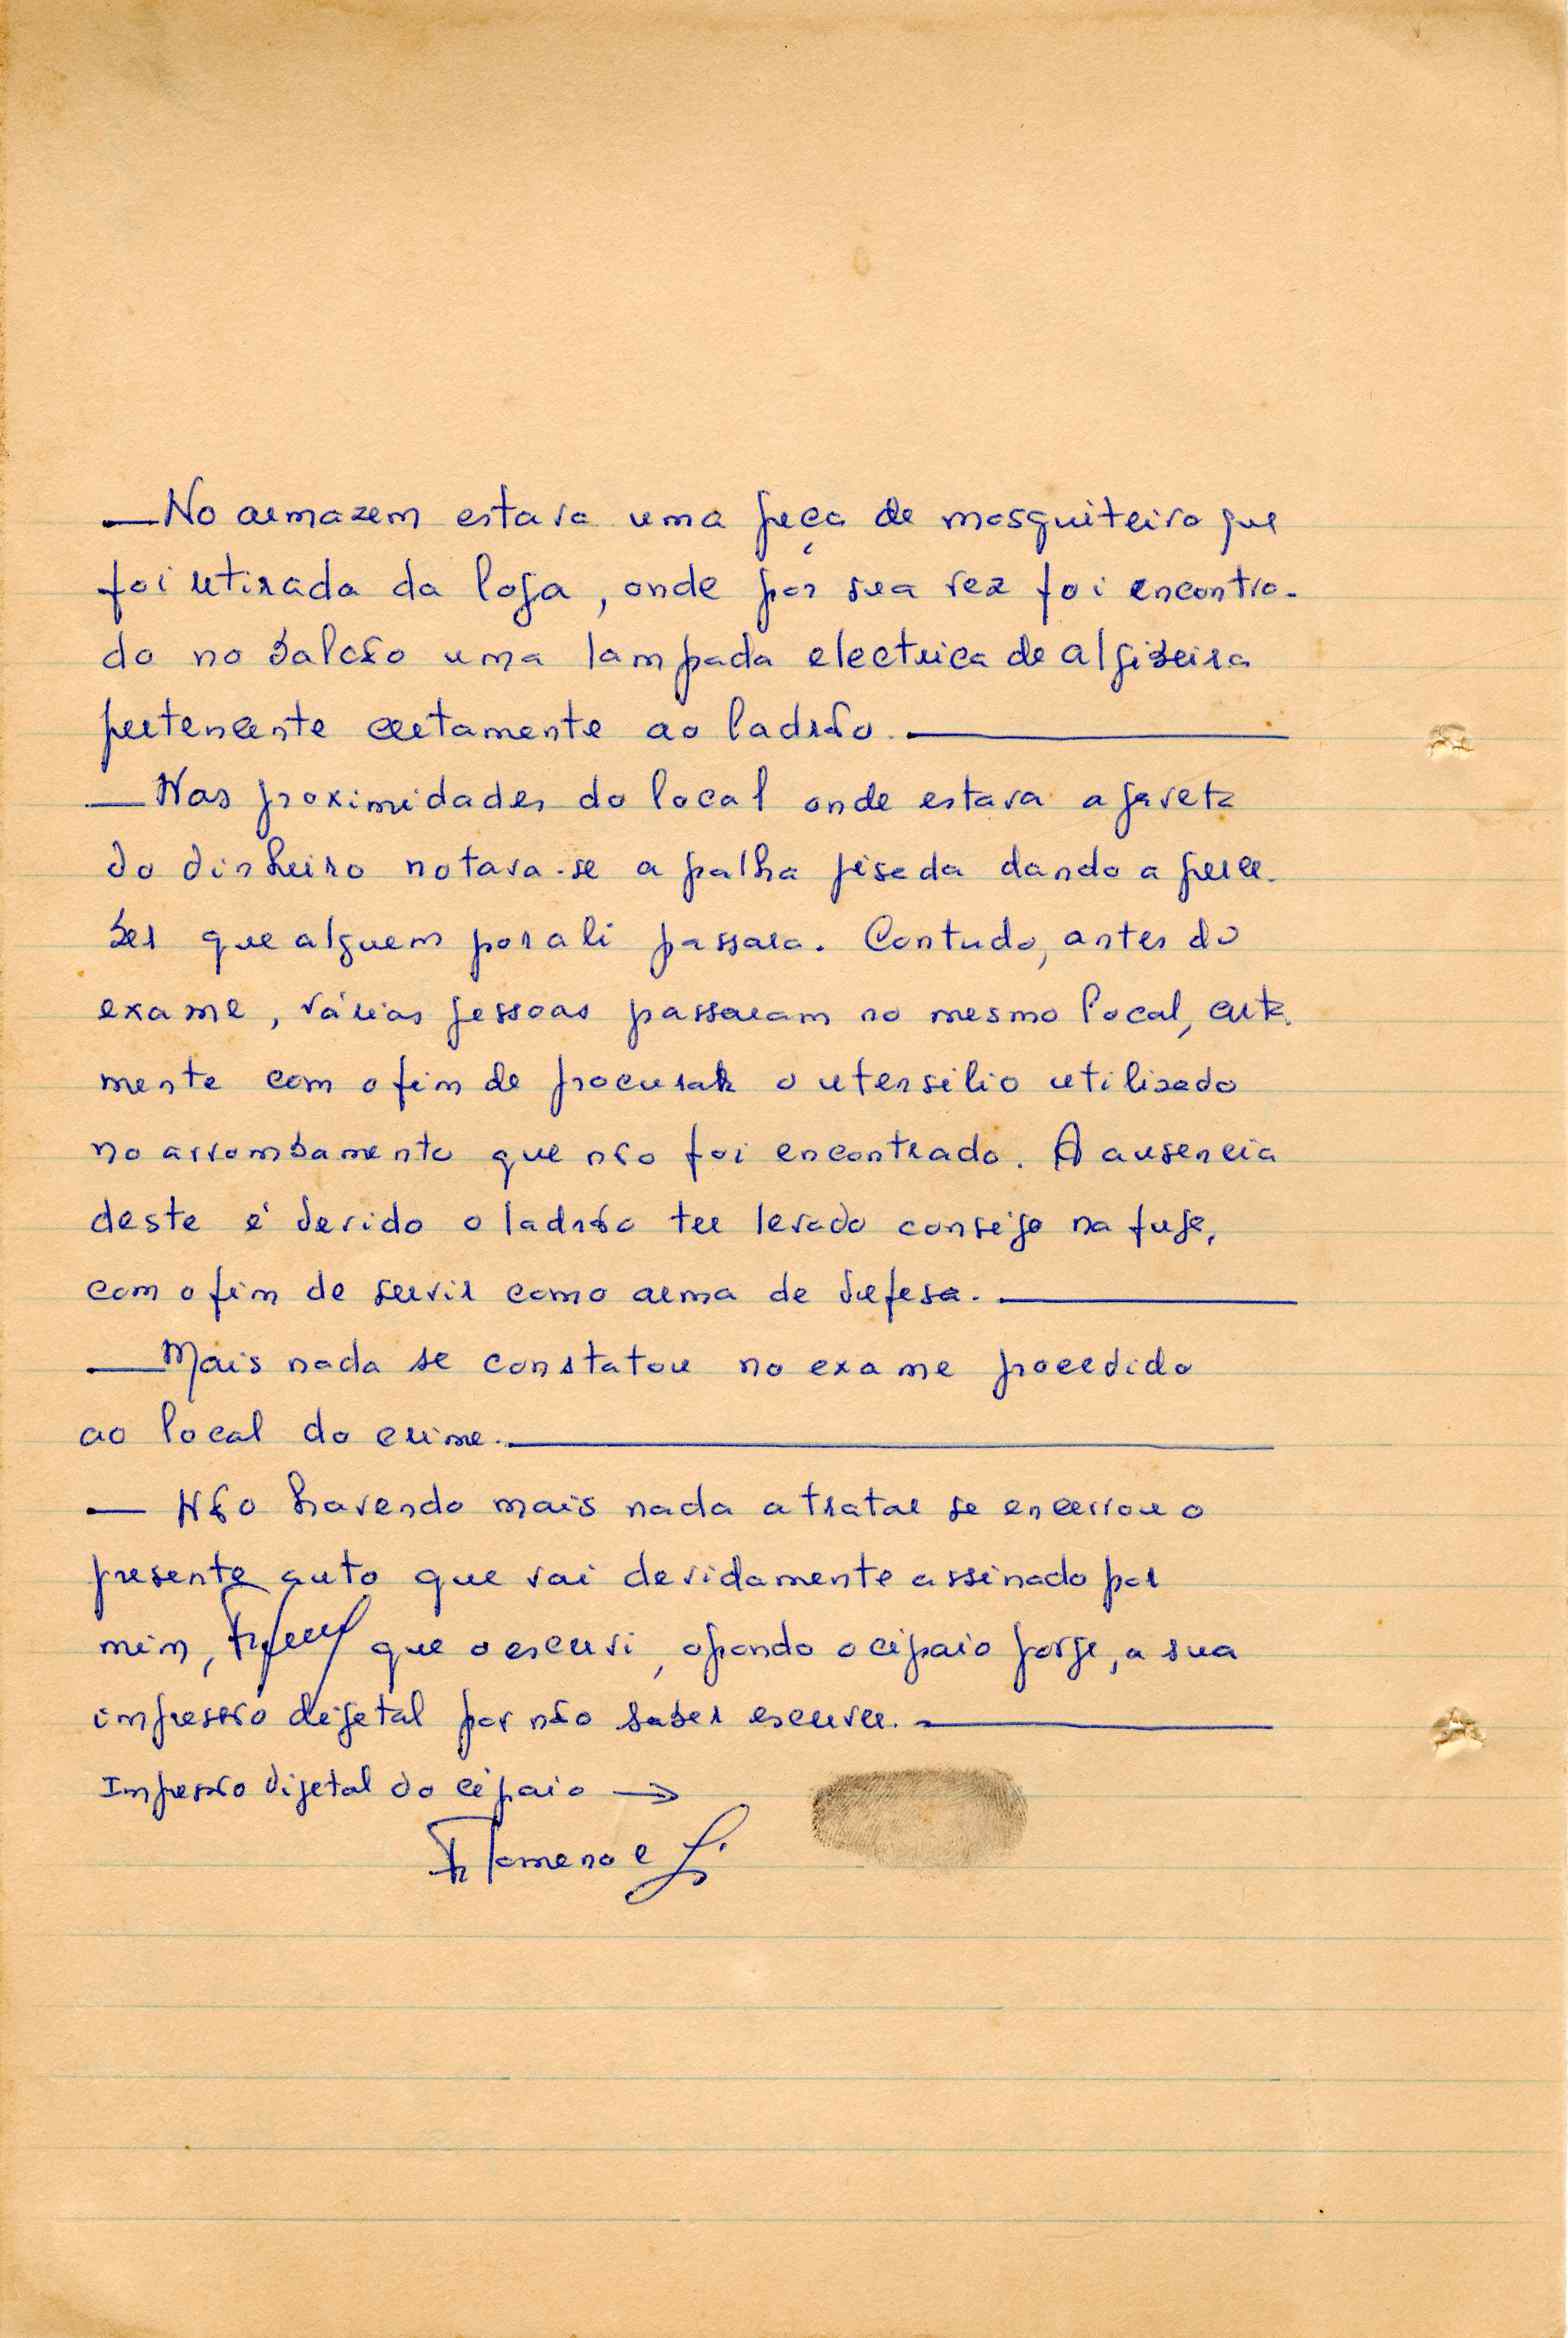 — No armazem estava uma peça de mosquiteiro que
foi retirada da loja, onde por sua vez foi encontra-
do no balcão uma lampada electrica de algibeira
pertencente certamente ao ladrão. —
— Nas proximidades do local onde estava a gaveta
do dinheiro notava-se a palha pisada dando a perce-
ber que alguem por ali passara. Contudo, antes do
exame, várias pessoas passaram no mesmo local, certa-
mente com o fim de procurar o utensilio utilizado
no arrombamento que não foi encontrado. A ausencia
deste é devido o ladrão ter levado consigo na fuga,
com o fim de servir como arma de defesa. —
— Mais nada se constatou no exame procedido
ao local do crime. —
— Não havendo mais nada a tratar se encerrou o
presente auto que vai devidamente assinado por
mim, que o escrevi, opondo o cipaio Jorge, a sua
impressão digetal por não saber escrever. —
Impressão digetal do cipaio →